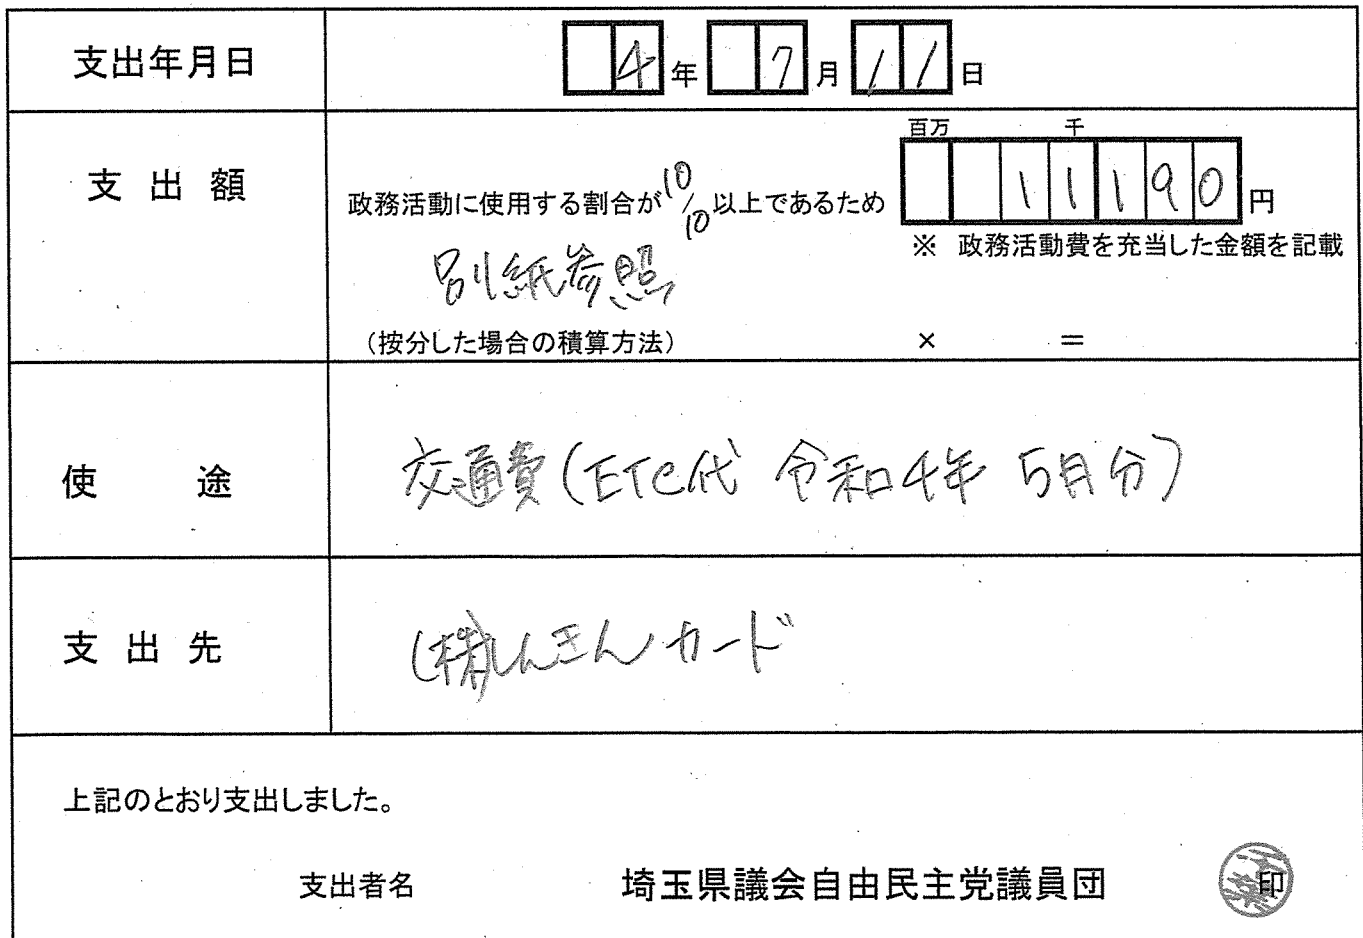 支出年月日 4年 7月 11日
百万 千
支出額 政務活動に使用する割合が10/10以上であるため 11190円
※ 政務活動費を充当した金額を記載
別紙参照
(按分した場合の積算方法) × =
使途 交通費(ETC代 令和4年 5月分)
支出先 (株)しんきんカード
上記のとおり支出しました。
支出者名 埼玉県議会自由民主党議員団 印